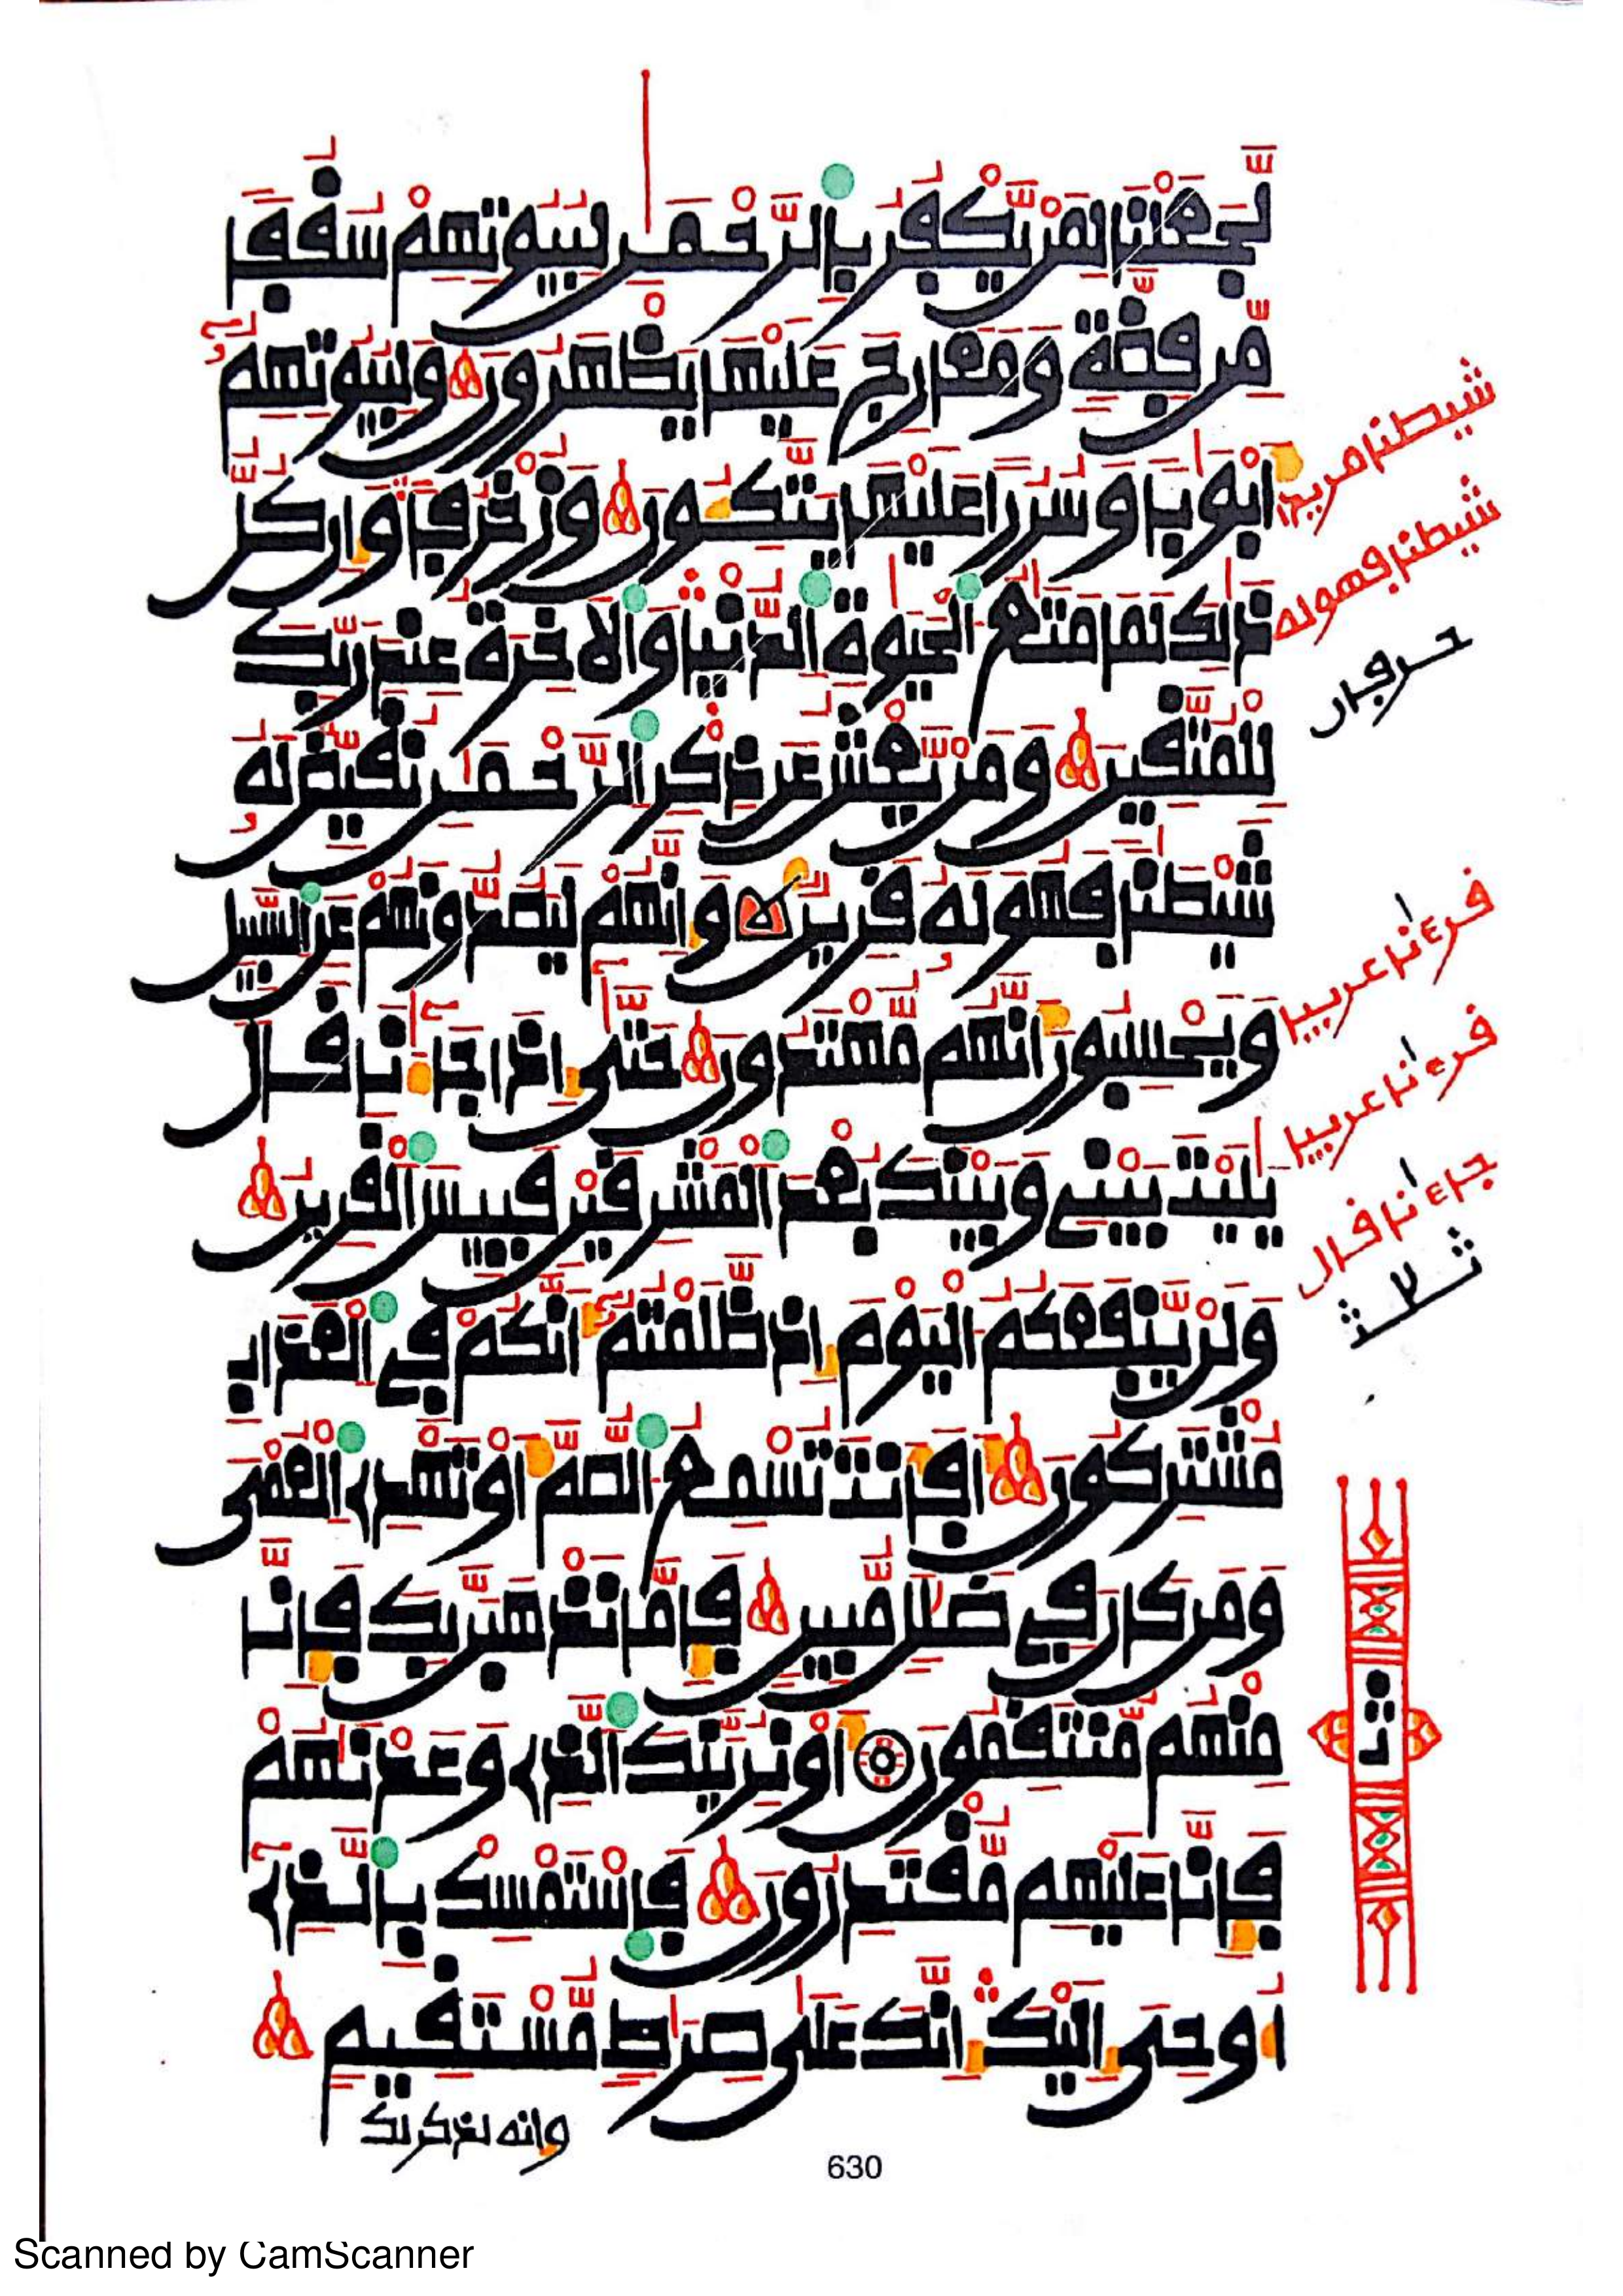 لَّجَعَلْنَا لِمَنْ يَّكْفُرُ بِالرَّحْمَٰنِ لِبُيُوتِهِمْ سُقُفًا
مِّن فِضَّةٍ وَمَعَارِجَ عَلَيْهَا يَظْهَرُونَ وَلِبُيُوتِهِمُۥٓ
أَبْوَٰبًا وَسُرُرًا عَلَيْهَا يَتَّكُونَ وَزُخْرُفًا وَإِن كُلُّ
ذَٰلِكَ لَمَا مَتَٰعُ الْحَيَوٰةِ الدُّنْيَا وَالَاخِرَةُ عِندَ رَبِّكَ
لِلْمُتَّقِينَ وَمَنْ يَّعْشُ عَن ذِكْرِ الرَّحْمَٰنِ نُقَيِّضْ لَهُۥ
شَيْطَٰنًا فَهُوَ لَهُۥ قَرِينٌ وَإِنَّهُمْ لَيَصُدُّونَهُمْ عَنِ السَّبِيلِ
وَيَحْسِبُونَ أَنَّهُم مُّهْتَدُونَ حَتَّىٰٓ إِذَا جَآءَٰنَا قَالَ
يَٰلَيْتَ بَيْنِي وَبَيْنَكَ بُعْدَ الْمَشْرِقَيْنِ فَبِيسَ الْقَرِينُ
وَلَنْ يَّنفَعَكُمُ الْيَوْمَ إِذ ظَّلَمْتُمُۥٓ أَنَّكُمْ فِي الْعَذَابِ
مُشْتَرِكُونَ أَفَأَنتَ تُسْمِعُ الصُّمَّ أَوْ تَهْدِي الْعُمْيَ
وَمَن كَانَ فِي ضَلَٰلٍ مُّبِينٍ فَإِمَّا نَذْهَبَنَّ بِكَ فَإِنَّا
مِنْهُم مُّنتَقِمُونَ أَوْ نُرِيَنَّكَ الَّذِي وَعَدْنَٰهُمْ
فَإِنَّا عَلَيْهِم مُّقْتَدِرُونَ فَاسْتَمْسِكْ بِالَّذِيٓ
أُوحِيَ إِلَيْكَ إِنَّكَ عَلَىٰ صِرَٰطٍ مُّسْتَقِيمٍ
وإنه لذكر لك
شيطنا مريدا
شيطنا فهو له
حرفان
قرءنا عربيا
قرءنا عربيا
جاءنا قال
ثلث
ثمن
630
Scanned by CamScanner